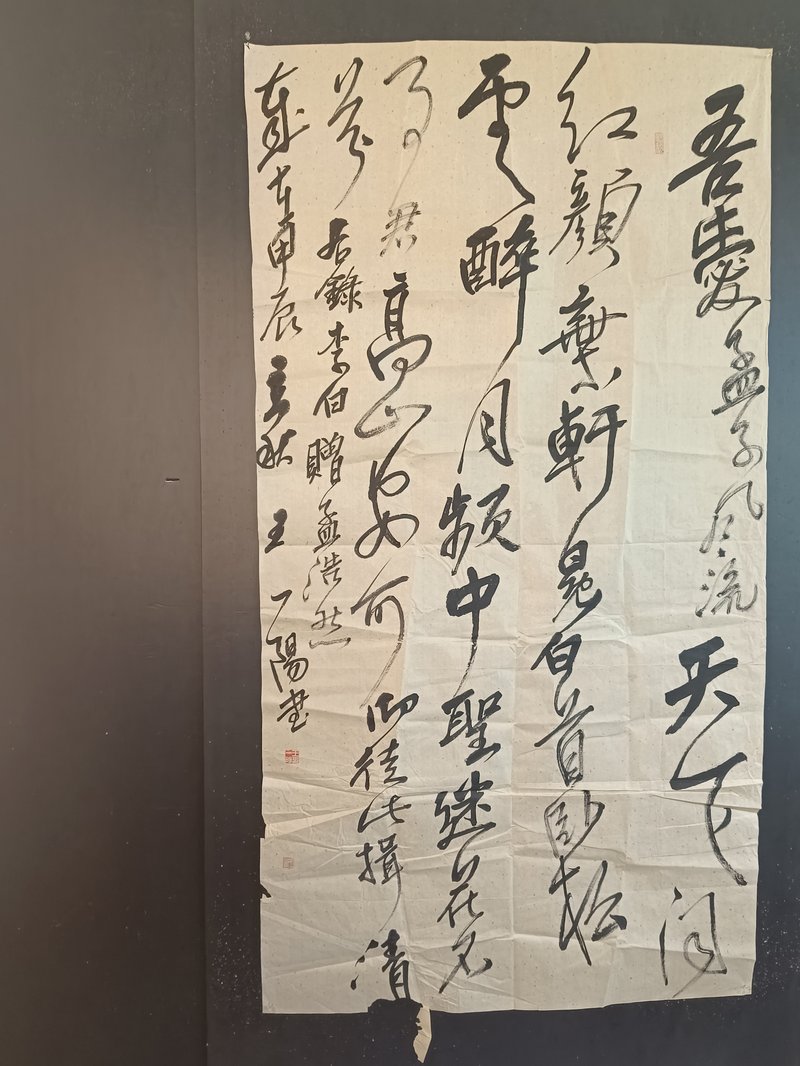 吾愛孟子风流天下闻
红顔棄軒冕白首卧松
雲醉月频中聖迷花不
事君高山安可仰徒此揖清
芬 右錄李白贈孟浩然
歲在甲辰立秋 王一陽書